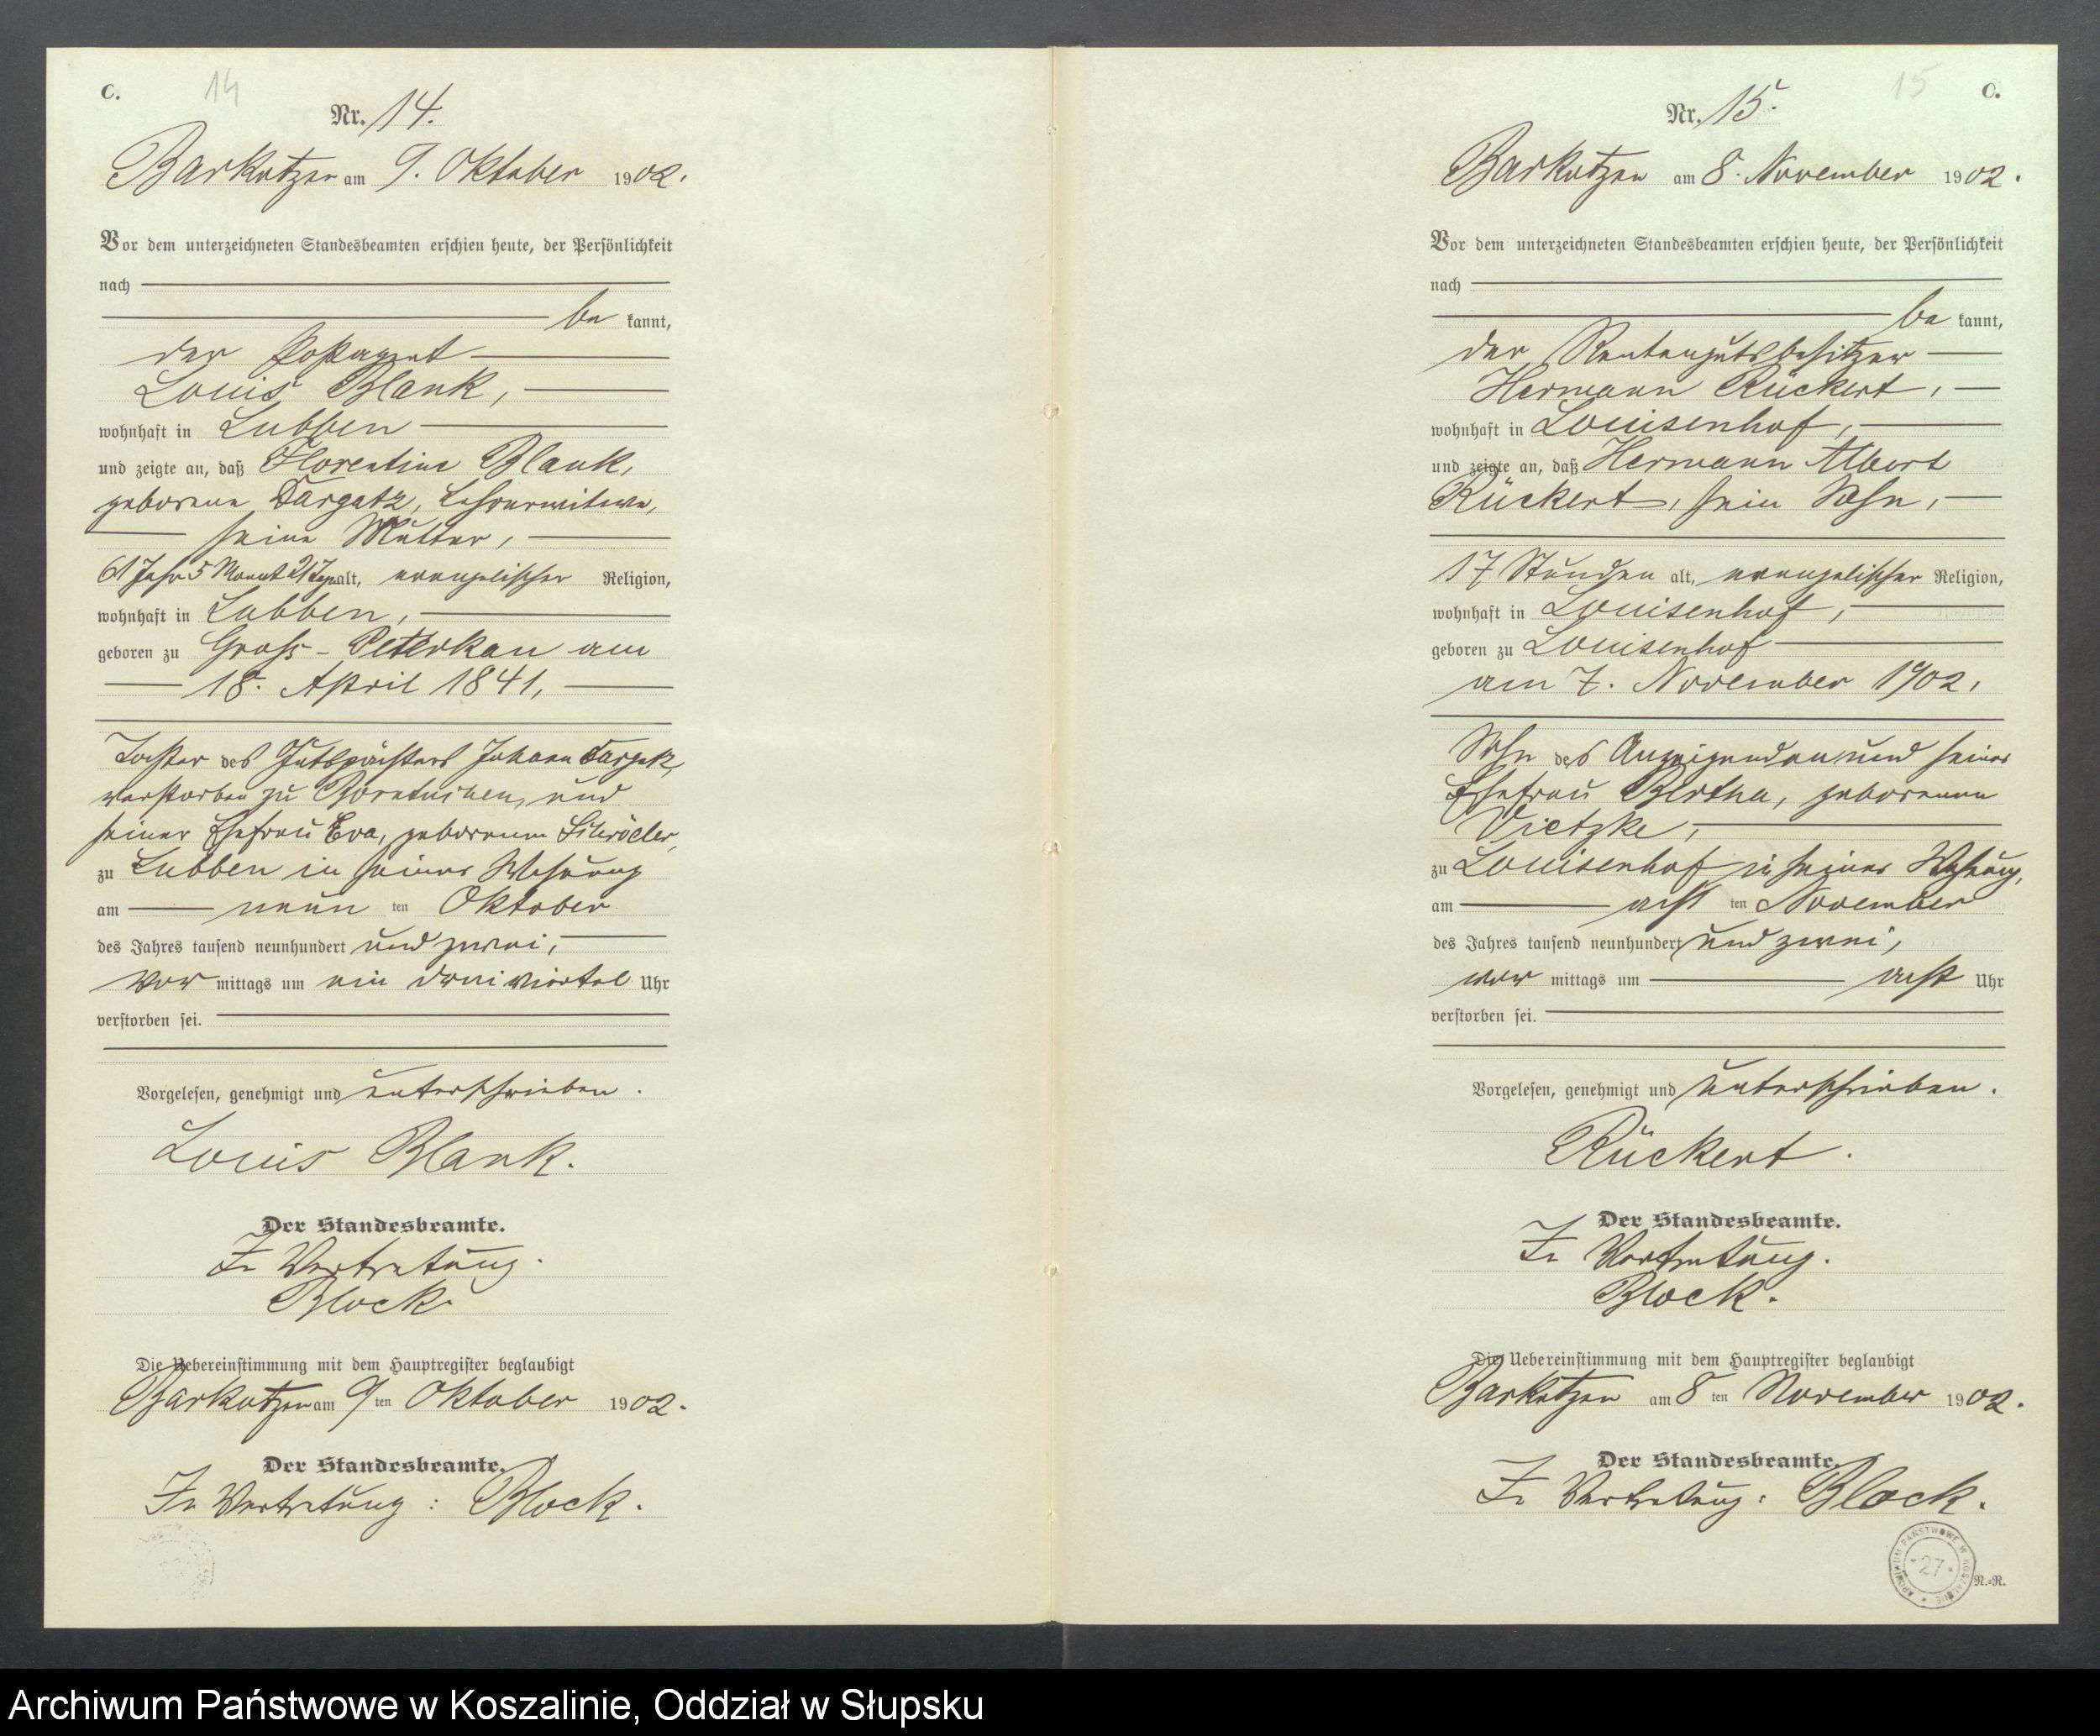 C.
14
Nr. 14.
Barkotzen am 9. Oktober 1902.
Vor dem unterzeichneten Standesbeamten erschien heute, der Persönlichkeit
nach
be kannt,
der Postagent
Louis Blank,
wohnhaft in Lubben
und zeigte an, daß Florentine Blank,
geborene Targatz, Lehrerwitwe,
seine Mutter,
61 Jahr 5 Monat 21 Tage alt, evangelischer Religion,
wohnhaft in Lubben,
geboren zu Gross-Peterkau am
18. April 1841,
Tochter des Gutspächters Johann Targatz,
verstorben zu und
seiner Ehefrau Eva, geborenen Schröder,
zu Lubben in seiner Wohnung
am neun ten Oktober
des Jahres tausend neunhundert und zwei,
vor mittags um ein dreiviertel Uhr
verstorben sei.
Vorgelesen, genehmigt und unterschrieben.
Louis Blank.
Der Standesbeamte.
In Vertretung.
Block.
Die Uebereinstimmung mit dem Hauptregister beglaubigt
Barkotzen am 9 ten Oktober 1902.
Der Standesbeamte.
In Vertretung: Block.
15
C.
Nr. 15.
Barkotzen am 8. November 1902.
Vor dem unterzeichneten Standesbeamten erschien heute, der Persönlichkeit
nach
be kannt,
der Rentengutsbesitzer
Hermann Rückert,
wohnhaft in Louisenhof,
und zeigte an, daß Hermann Albert
Rückert, sein Sohn,
17 Stunden alt, evangelischer Religion,
wohnhaft in Louisenhof,
geboren zu Louisenhof
am 7. November 1902,
Sohn des Anzeigenden und seiner
Ehefrau Bertha, geborenen
Vietzke,
zu Louisenhof in seiner Wohnung,
am acht ten November
des Jahres tausend neunhundert und zwei,
vor mittags um acht Uhr
verstorben sei.
Vorgelesen, genehmigt und unterschrieben.
Rückert.
Der Standesbeamte.
In Vertretung.
Block.
Die Uebereinstimmung mit dem Hauptregister beglaubigt
Barkotzen am 8 ten November 1902.
Der Standesbeamte.
In Vertretung: Block.
ARCHIWUM PAŃSTWOWE W KOSZALINIE
27
R.-R.
Archiwum Państwowe w Koszalinie, Oddział w Słupsku